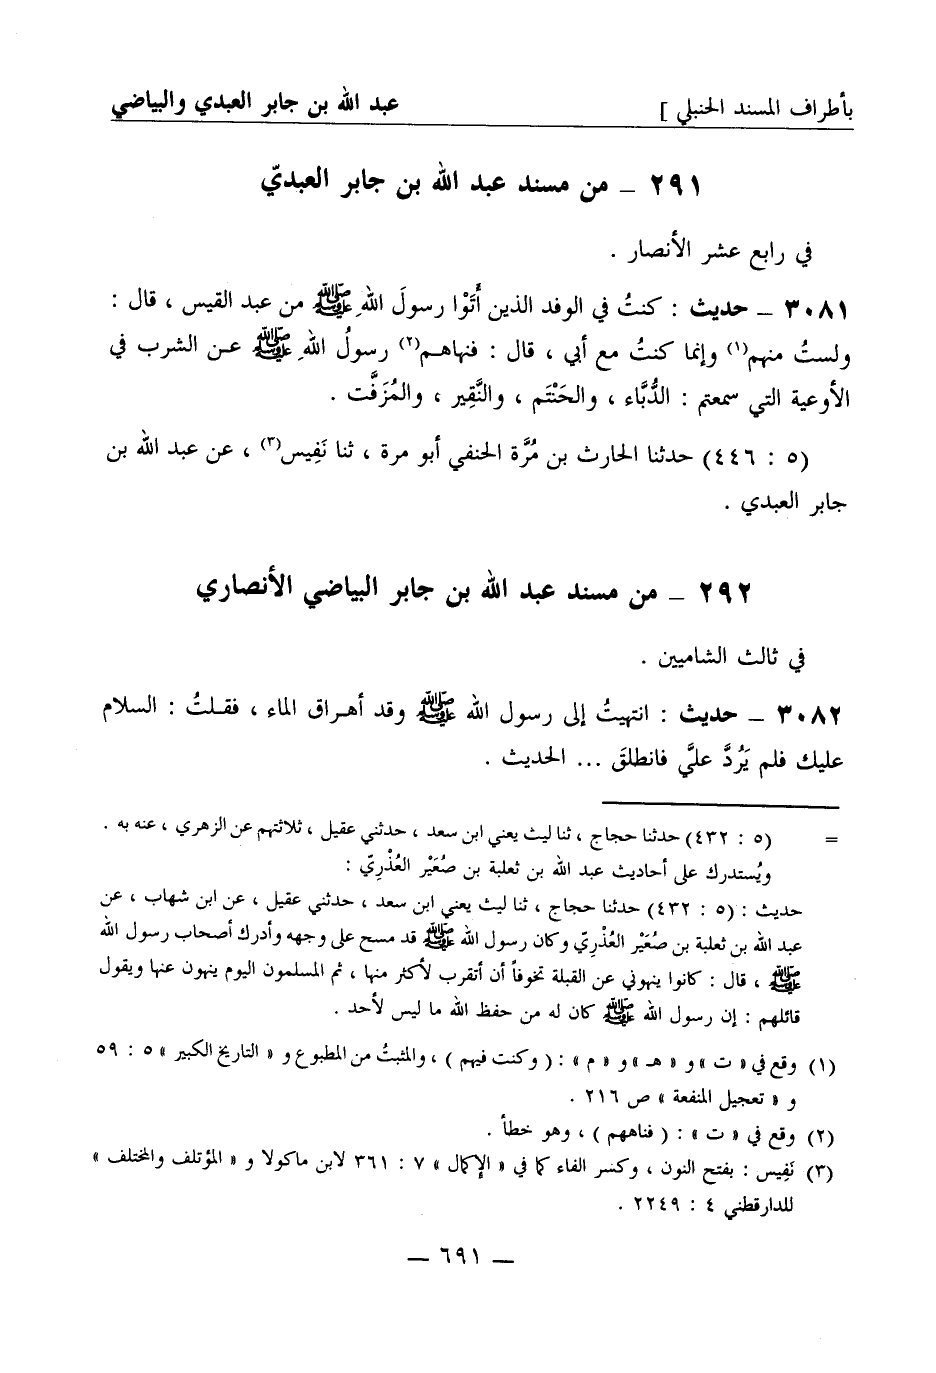 بأطراف المسند الحنبلي ] عبد الله بن جابر العبدي والبياضي
٢٩١ ــ من مسند عبد الله بن جابر العبديّ
في رابع عشر الأنصار .
٣٠٨١ ــ حديث : كنتُ في الوفد الذين أَتَوْا رسولَ اللهِ ﷺ من عبد القيس ، قال :
ولستُ منهم(١) وإنما كنتُ مع أبي ، قال : فنهاهـم(٢) رسولُ اللهِ ﷺ عـن الشرب في
الأوعية التي سمعتم : الدُّبَّاء ، والحَنْتَم ، والنَّقِير ، والمُزَفَّت .
(٥ : ٤٤٦) حدثنا الحارث بن مُرَّة الحنفي أبو مرة ، ثنا نَفِيس(٣) ، عن عبد الله بن
جابر العبدي .
٢٩٢ ــ من مسند عبد الله بن جابر البياضي الأنصاري
في ثالث الشاميين .
٣٠٨٢ ــ حديث : انتهيتُ إلى رسول الله ﷺ وقد أهـراق الماء ، فقـلتُ : السلام
عليك فلم يَرُدَّ عليَّ فانطلقَ ... الحديث .
= (٥ : ٤٣٢) حدثنا حجاج ، ثنا ليث يعني ابن سعد ، حدثني عقيل ، ثلاثتهم عن الزهري ، عنه به .
ويُستدرك على أحاديث عبد الله بن ثعلبة بن صُعَيْر العُذْرِيّ :
حديث : (٥ : ٤٣٢) حدثنا حجاج ، ثنا ليث يعني ابن سعد ، حدثني عقيل ، عن ابن شهاب ، عن
عبد الله بن ثعلبة بن صُعَيْر العُذْرِيّ وكان رسول الله ﷺ قد مسح على وجهه وأدرك أصحاب رسول الله
ﷺ ، قال : كانوا ينهوني عن القبلة تخوفاً أن أتقرب لأكثر منها ، ثم المسلمون اليوم ينهون عنها ويقول
قائلهم : إن رسول الله ﷺ كان له من حفظ الله ما ليس لأحد .
(١) وقع في « ت » و « هـ » و « م » : ( وكنت فيهم ) ، والمثبتُ من المطبوع و « التاريخ الكبير » ٥ : ٥٩
و « تعجيل المنفعة » ص ٢١٦ .
(٢) وقع في « ت » : ( فناههم ) ، وهو خطأ .
(٣) نَفِيس : بفتح النون ، وكسر الفاء كما في « الإكمال » ٧ : ٣٦١ لابن ماكولا و « المؤتلف والمختلف »
للدارقطني ٤ : ٢٢٤٩ .
ــ ٦٩١ ــ